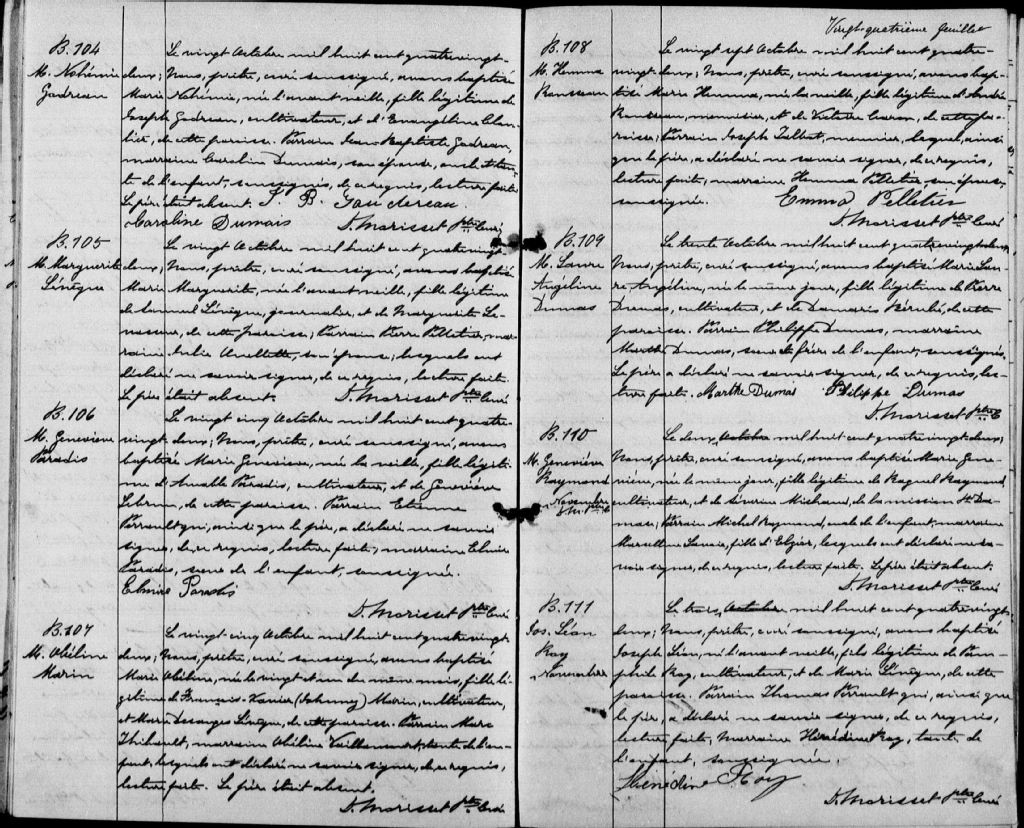 B.104
M. Nohémie
Godreau
Le vingt Octobre mil huit cent quatre vingt-
deux; Nous, prêtre, curé soussigné, avons baptisé
Marie Nohémie, née l'avant veille, fille légitime de
Joseph Godreau, cultivateur, et d'Evangéline
de cette paroisse. Parrain Jean Baptiste Godreau,
marraine Caroline Dumais, son épouse,
de l'enfant, soussignés, de ce requis, lecture faite.
Le père était absent. J. B. Gaudereau
Caroline Dumais D. Morisset Ptre Curé
B.105
M. Marguerite
Lévêque
Le vingt Octobre mil huit cent quatre vingt-
deux; Nous, prêtre, curé soussigné, avons baptisé
Marie Marguerite, née l'avant veille, fille légitime
de Lévêque, journalier, et de Marguerite Le-
vasseur, de cette paroisse; Parrain Pierre Pelletier, mar-
raine Julie Ouellette, son épouse, lesquels ont
déclaré ne savoir signer, de ce requis, lecture faite.
Le père était absent. D. Morisset Ptre Curé
B.106
M. Geneviève
Paradis
Le vingt cinq Octobre mil huit cent quatre-
vingt deux; Nous, prêtre, curé soussigné, avons
baptisé Marie Geneviève, née la veille, fille légiti-
me d'Amable Paradis, cultivateur, et de Geneviève
Lebrun, de cette paroisse. Parrain Etienne
Perrault qui, ainsi que le père, a déclaré ne savoir
signer, de ce requis, lecture faite; marraine
Paradis, soeur de l'enfant, soussignée.
Paradis
D. Morisset Ptre Curé
B.107
M. Obéline
Morin
Le vingt cinq Octobre mil huit cent quatre vingt
deux; Nous, prêtre, curé soussigné, avons baptisé
Marie Obéline, née le vingt et un du même mois, fille lé-
gitime de François-Xavier (Johnny) Morin, cultivateur,
et Marie Desanges Lévêque, de cette paroisse. Parrain Marc
Thibault, marraine Obéline Vaillancourt, tante de l'en-
fant, lesquels ont déclaré ne savoir signer, de ce requis,
lecture faite. Le père était absent.
D. Morisset Ptre Curé
Vingt-quatrième feuillet
B.108
M. Hemma
Rousseau
Le vingt sept Octobre mil huit cent quatre-
vingt-deux; Nous, prêtre, curé soussigné, avons bap-
tisé Marie Hemma, née la veille, fille légitime d'André
Rousseau, menuisier, et de Victoire Caron, de cette pa-
roisse; Parrain Joseph Talbot, meunier, lequel, ainsi
que le père, a déclaré ne savoir signer, de ce requis,
lecture faite, marraine Hemma Pelletier, son épouse,
soussignée. Emma Pelletier
D. Morisset Ptre Curé
B.109
M. Laure
Angéline
Dumas
Le trente Octobre mil huit cent quatre vingt deux,
Nous, prêtre, curé soussigné, avons baptisé Marie Lau-
re Angéline, née le même jour, fille légitime de Pierre
Dumas, cultivateur, et de Damaris Bérubé, de cette
paroisse. Parrain Philippe Dumas, marraine
Marthe Dumas, soeur et frère de l'enfant, soussignés.
Le père a déclaré ne savoir signer, de ce requis, lec-
ture faite. Marthe Dumas Philippe Dumas
D. Morisset Ptre C
B.110
M. Geneviève
Raymond
Novembre
Le deux Octobre mil huit cent quatre vingt deux;
Nous, prêtre, curé soussigné, avons baptisé Marie Gene-
viève, née le même jour, fille légitime de Raymond,
cultivateur, et de Michaud, de la mission St Da-
mase; Parrain Michel Raymond, oncle de l'enfant, marraine
Marcelline Lavoie, fille d'Elzéar, lesquels ont déclaré ne sa-
voir signer, de ce requis, lecture faite. Le père était absent.
D. Morisset Ptre Curé
B.111
Jos. Léon
Roy
Novembre
Le trois Octobre mil huit cent quatre vingt-
deux; Nous, prêtre, curé soussigné, avons baptisé
Joseph Léon, né l'avant veille, fils légitime de Pam-
phile Roy, cultivateur, et de Marie Lévêque, de cette
paroisse. Parrain Thomas Perrault qui, ainsi que
le père, a déclaré ne savoir signer, de ce requis,
lecture faite, Marraine Hénédine Roy, tante de
l'enfant, soussignée.
Hénédine Roy
D. Morisset Ptre Curé